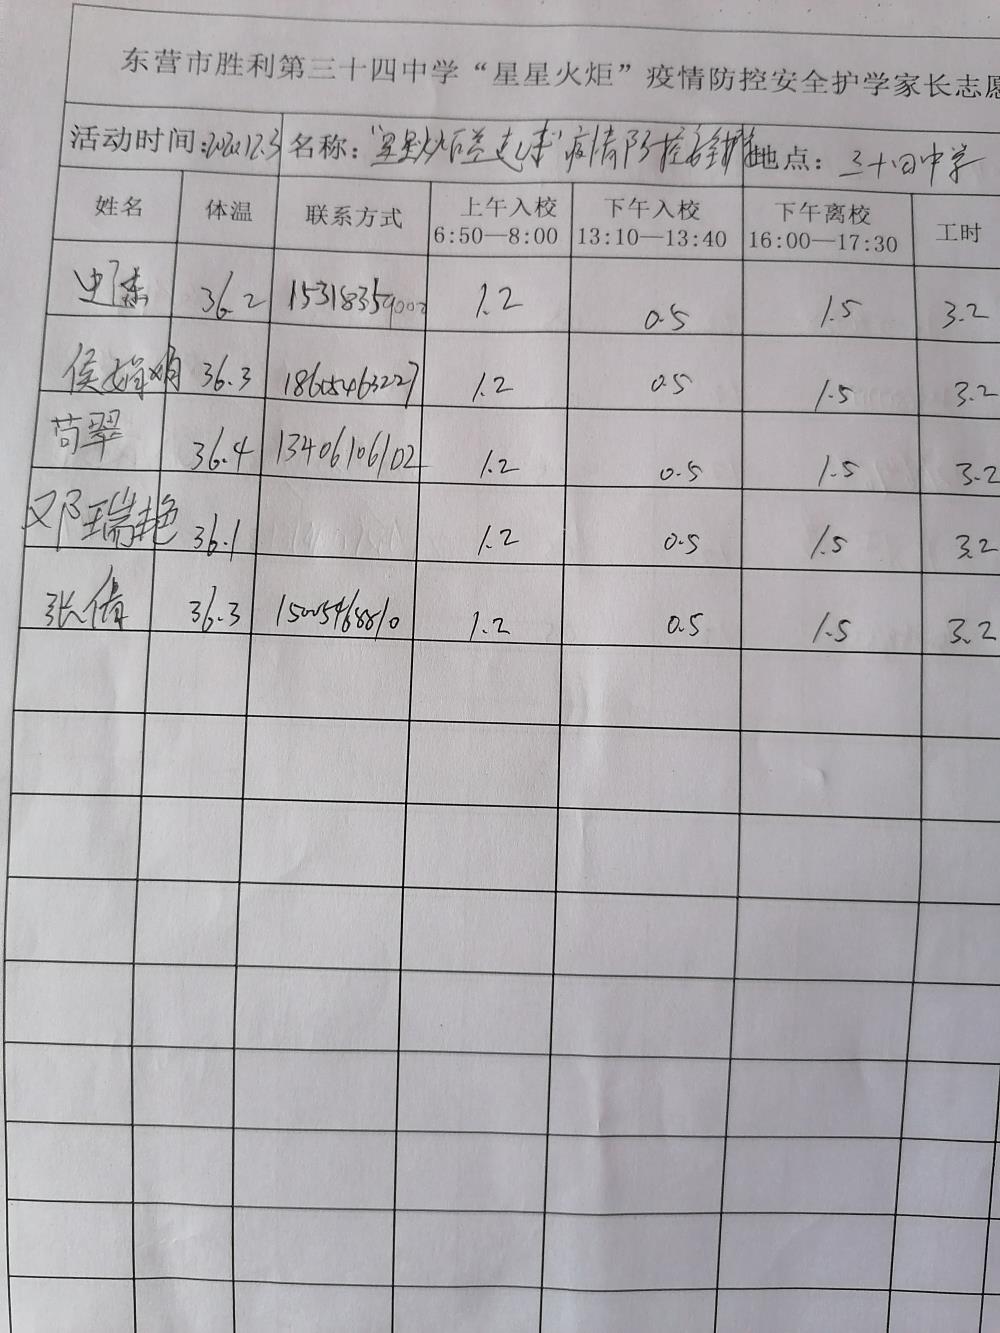 东营市胜利第三十四中学“星星火炬”疫情防控安全护学家长志愿
活动时间:2020.12.3 名称: 疫情防控安全护学 地点: 三十四中学
姓名 体温 联系方式 上午入校 6:50—8:00 下午入校 13:10—13:40 下午离校 16:00—17:30 工时
36.2 15318359002 1.2 0.5 1.5 3.2
侯娟娟 36.3 18605463227 1.2 0.5 1.5 3.2
苟翠 36.4 13406106102 1.2 0.5 1.5 3.2
邓瑞艳 36.1 1.2 0.5 1.5 3.2
张倩 36.3 15005468810 1.2 0.5 1.5 3.2